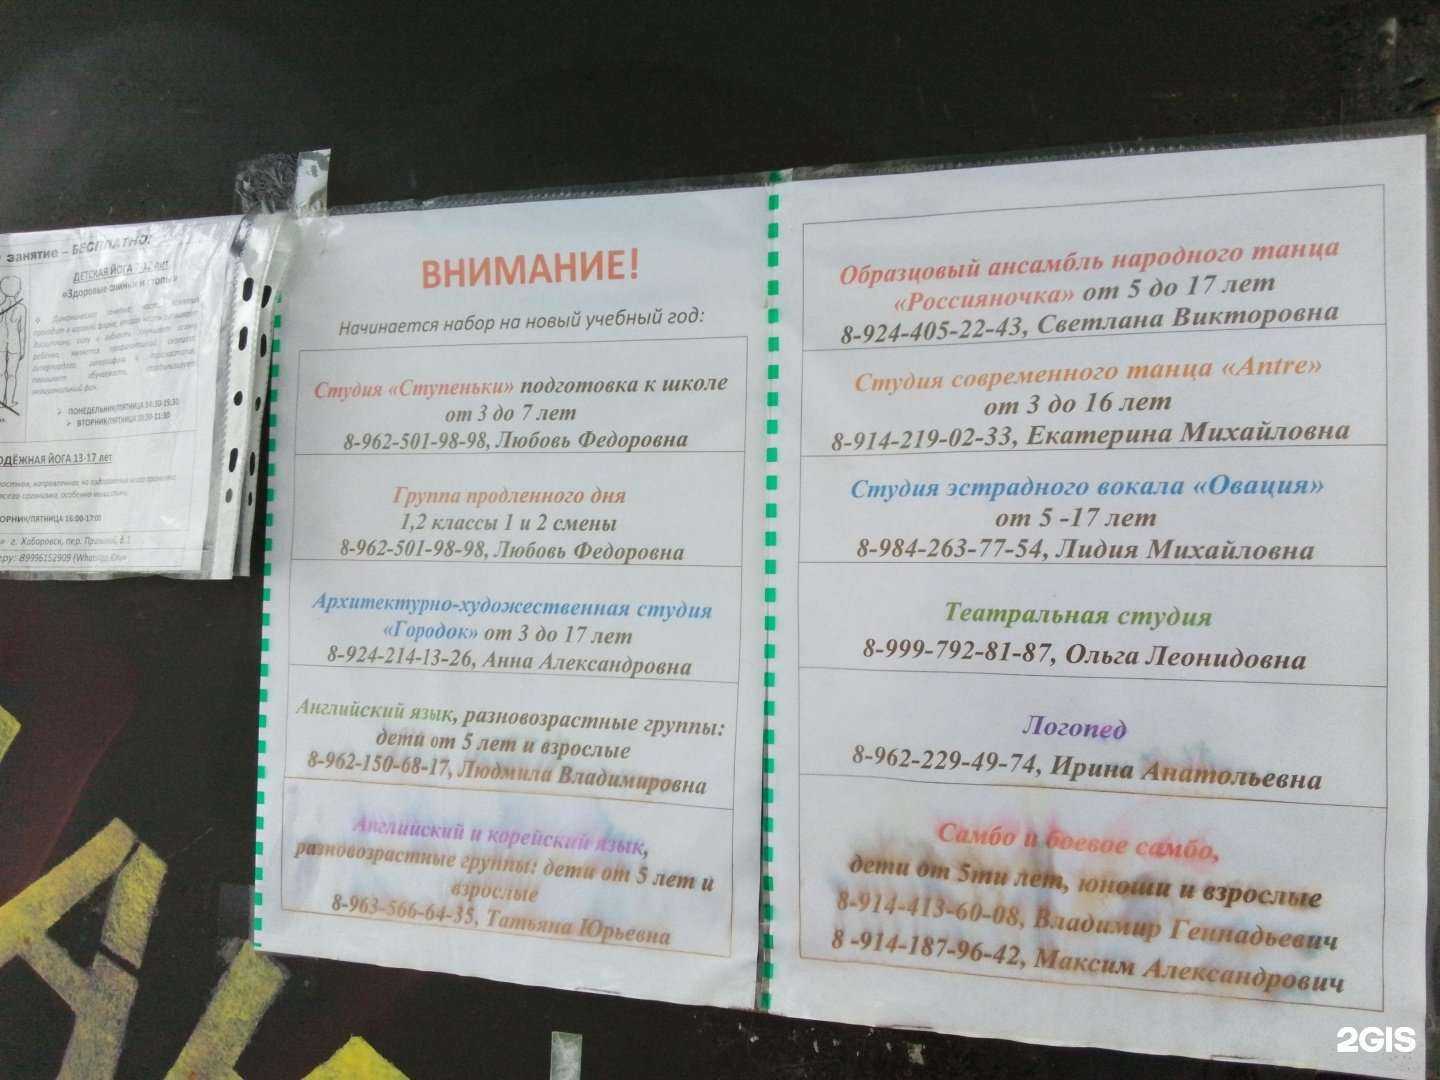 занятие – БЕСПЛАТНО!
ДЕТСКАЯ ЙОГА 7-12 лет
«Здоровые спинки и стопы»
ПОНЕДЕЛЬНИК/ПЯТНИЦА
ВТОРНИК/ПЯТНИЦА
ЙОГА 13-17 лет
/ПЯТНИЦА 16:00-17:00
г. Хабаровск, пер.
89996152909 (WhatsApp
ВНИМАНИЕ!
Начинается набор на новый учебный год:
Студия «Ступеньки» подготовка к школе
от 3 до 7 лет
8-962-501-98-98, Любовь Федоровна
Группа продленного дня
1,2 классы 1 и 2 смены
8-962-501-98-98, Любовь Федоровна
Архитектурно-художественная студия
«Городок» от 3 до 17 лет
8-924-214-13-26, Анна Александровна
Английский язык, разновозрастные группы:
дети от 5 лет и взрослые
8-962-150-68-17, Людмила Владимировна
Английский и корейский язык,
разновозрастные группы: дети от 5 лет и
взрослые
8-963-566-64-35, Татьяна Юрьевна
Образцовый ансамбль народного танца
«Россияночка» от 5 до 17 лет
8-924-405-22-43, Светлана Викторовна
Студия современного танца «Antre»
от 3 до 16 лет
8-914-219-02-33, Екатерина Михайловна
Студия эстрадного вокала «Овация»
от 5 -17 лет
8-984-263-77-54, Лидия Михайловна
Театральная студия
8-999-792-81-87, Ольга Леонидовна
Логопед
8-962-229-49-74, Ирина Анатольевна
Самбо и боевое самбо,
дети от 5ти лет, юноши и взрослые
8-914-413-60-08, Владимир Геннадьевич
8 -914-187-96-42, Максим Александрович
2GIS